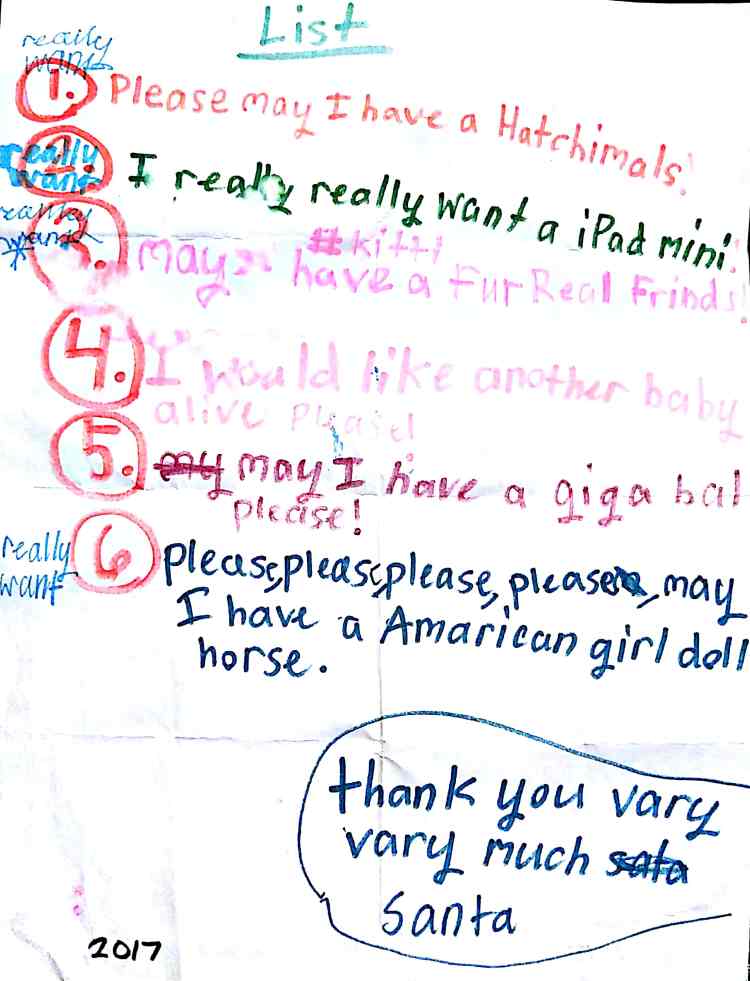 List
really
want
1. Please may I have a Hatchimals!
really
want
2. I really really want a iPad mini!
really
want
#kitti
3. may I have a Fur Real Frinds!
4. I would like another baby
alive please!
5. my may I have a giga bal
please!
really
want
6 please, please, please, please, may
I have a Amarican girl doll
horse.
thank you vary
vary much sata
Santa
2017